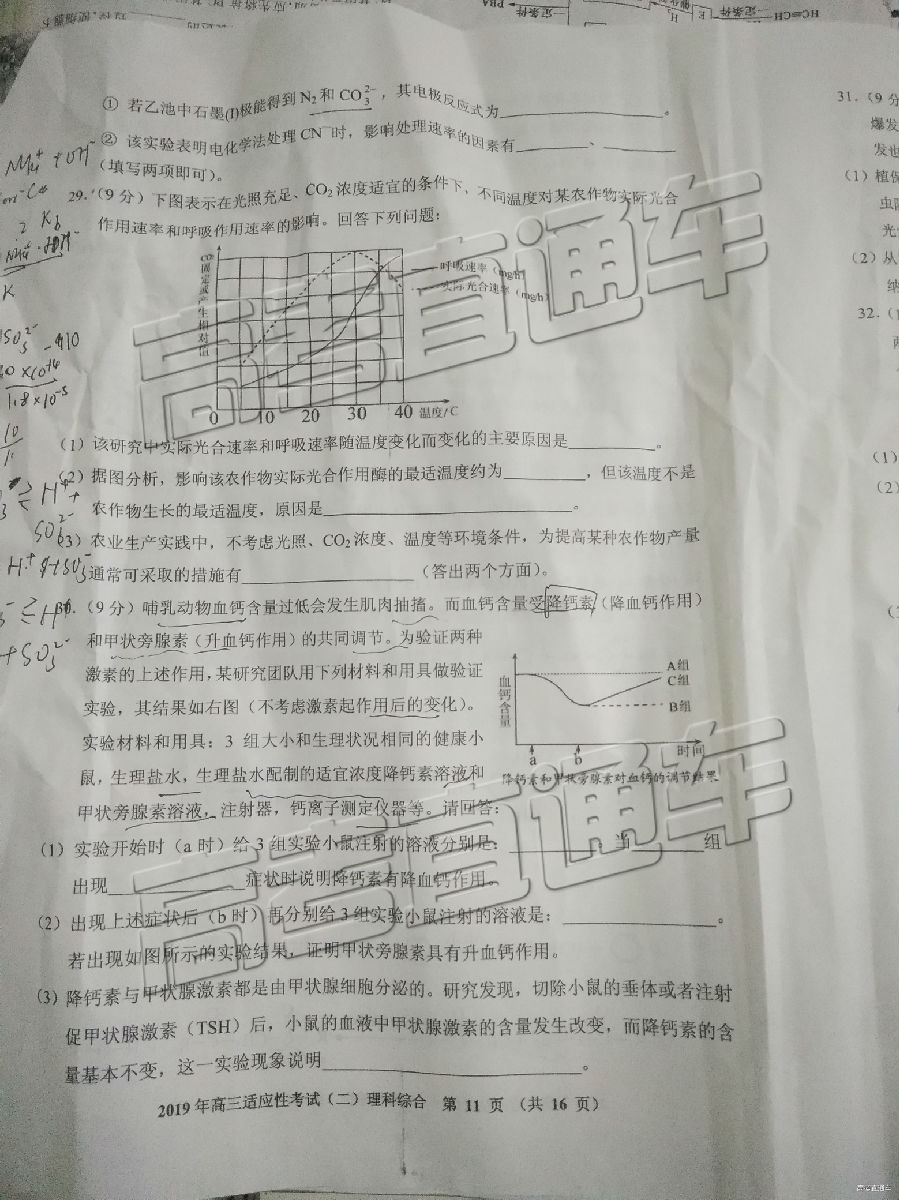 HC≡CH 一定条件 E H₂ 一定条件 PBA
① 若乙池中石墨(I)极能得到 N₂ 和 CO₃²⁻，其电极反应式为____________。
② 该实验表明电化学法处理 CN⁻时，影响处理速率的因素有________、________
（填写两项即可）。
29.（9 分）下图表示在光照充足、CO₂ 浓度适宜的条件下，不同温度对某农作物实际光合
作用速率和呼吸作用速率的影响。回答下列问题：
CO₂固定或产生相对值
呼吸速率（mg/h）
实际光合速率（mg/h）
0 10 20 30 40 温度/℃
（1）该研究中实际光合速率和呼吸速率随温度变化而变化的主要原因是__________。
（2）据图分析，影响该农作物实际光合作用酶的最适温度约为________，但该温度不是
农作物生长的最适温度，原因是________________________。
（3）农业生产实践中，不考虑光照、CO₂ 浓度、温度等环境条件，为提高某种农作物产量
通常可采取的措施有________________（答出两个方面）。
30.（9 分）哺乳动物血钙含量过低会发生肌肉抽搐。而血钙含量受降钙素（降血钙作用）
和甲状旁腺素（升血钙作用）的共同调节。为验证两种
激素的上述作用，某研究团队用下列材料和用具做验证
实验，其结果如右图（不考虑激素起作用后的变化）。
实验材料和用具：3 组大小和生理状况相同的健康小
鼠，生理盐水，生理盐水配制的适宜浓度降钙素溶液和
甲状旁腺素溶液，注射器，钙离子测定仪器等。请回答：
血钙含量
A组
C组
B组
a b 时间
降钙素和甲状旁腺素对血钙的调节结果
（1）实验开始时（a 时）给 3 组实验小鼠注射的溶液分别是：__________，当________组
出现______________症状时说明降钙素有降血钙作用。
（2）出现上述症状后（b 时）再分别给 3 组实验小鼠注射的溶液是：________________。
若出现如图所示的实验结果，证明甲状旁腺素具有升血钙作用。
（3）降钙素与甲状腺激素都是由甲状腺细胞分泌的。研究发现，切除小鼠的垂体或者注射
促甲状腺激素（TSH）后，小鼠的血液中甲状腺激素的含量发生改变，而降钙素的含
量基本不变，这一实验现象说明__________________________。
2019 年高三适应性考试（二）理科综合 第 11 页 （共 16 页）
高考直通车
高考直通车
31.（9 分
爆发
发也
（1）植保
虫防
光
（2）从
纳
32.（
（1）
（2）
NH₄⁺ + OH⁻
K
H⁺
SO₃²⁻
1.8×10⁻⁵